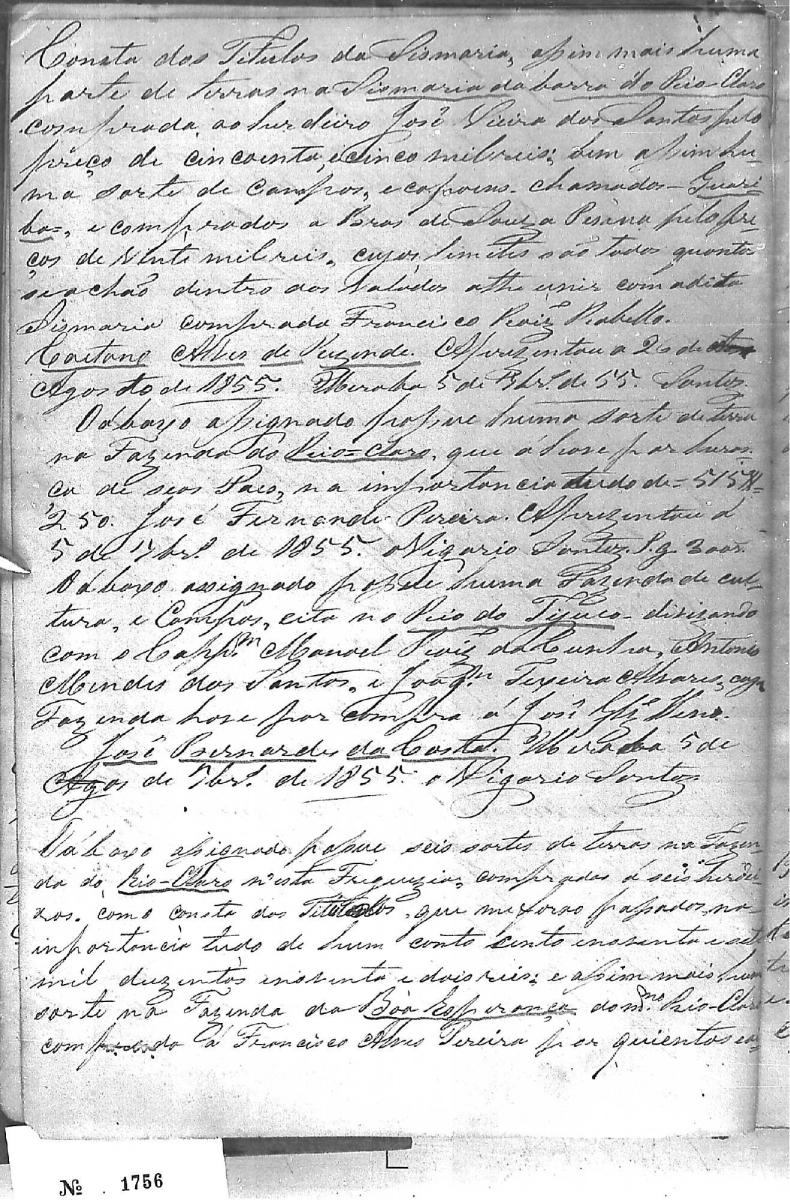 Consta dos Titulos da Sismaria, assim mais huma
parte de terras na Sismaria da barra do Rio-Claro
comprada, ao hurdeiro José Vieira dos Santos pelo
preço de cincoenta, e cinco mil reis; bem assim hu-
ma sorte de Campos, e capoens chamados - Guari-
bas, e comprados a Bras de Souza Penna pelo pre-
ços de Vinte mil reis, cujos limites são todos quantos
se achão dentro dos Valados athe unir com a dita
Sismaria comprada Francisco Roiz Rabello.
Caetano Alves de Rezende. Aprezentou a 26 de
Agosto de 1855. Uberaba 5 de 7br.º de 55. Santos
O abaxo assignado possue huma sorte de terra
na Fazenda do Rio-Claro, que á hove por heran-
ça de seos Paes, na importancia tudo de = 515#
250. José Fernande Pereira. Aprezentou a
5 de 7br.º de 1855. o Vigario Santos. P.g.
O abaxo assignado possue huma Fazenda de cul-
tura, e Campos, cita no Rio do Tijuco - divizando
com o Capp.m Manoel Roiz da Cunha, Antonio
Mendes dos Santos, e Joaq.m Texeira Alvares, cuja
Fazenda hove por compra á José
José Bernardes da Costa. Uberaba 5 de
Agos de 7br.º de 1855. o Vigario Santos
O abaxo assignado possue seis sortes de terras na Fazen-
da do Rio-Claro n'esta Freguezia, compradas á seis herdei-
ros, como consta dos Titulos, que me forao passados na
inportancia tudo de hum conto cento enoventa e sete
mil duzentos enoventa e dois reis; e assim mais huma
sorte na Fazenda da Bôa Esperança do m.mo Rio-Claro
comprada á Francisco Alves Pereira por quientos e
Nº 1756